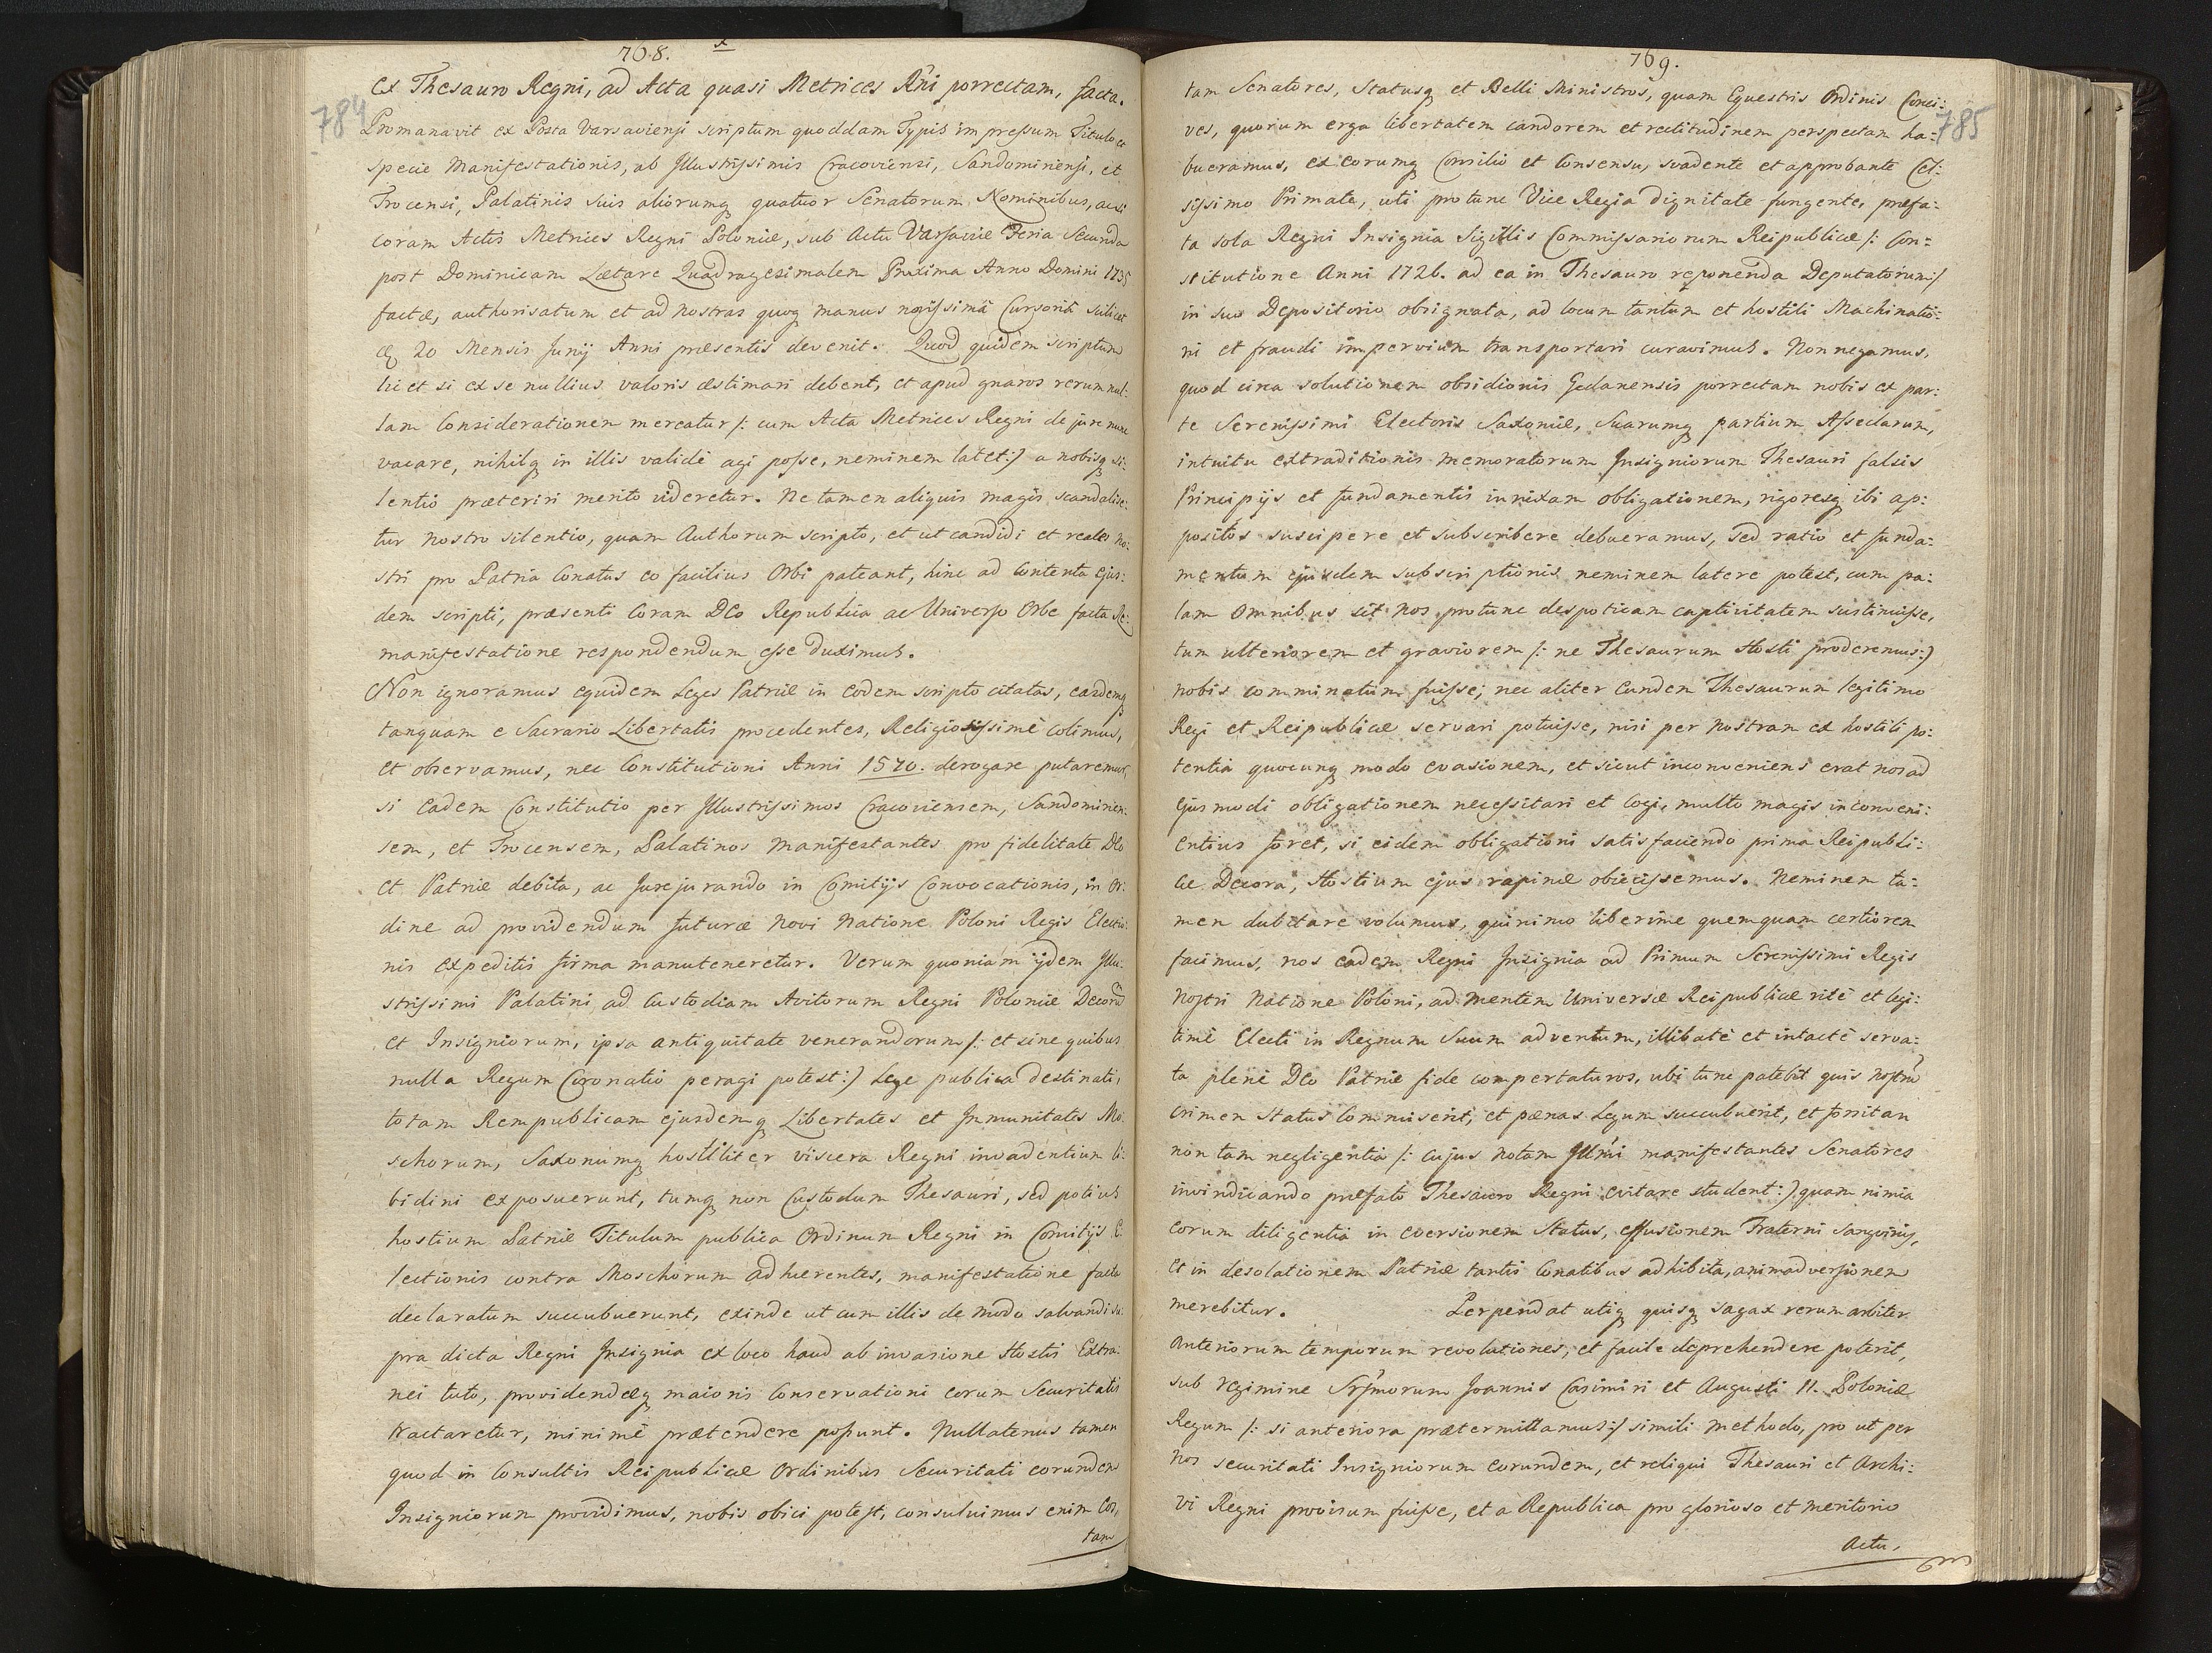 768. x
784
ex Thesauro Regni, ad Acta quasi Metrices Rni porrectam, facta.
Promanavit ex Posta Varsaviensi scriptum quoddam Typis impressum Titulo et
specie Manifestationis, ab Illustrissimis Cracoviensi, Sandomiriensi, et
Trocensi, Palatinis suis aliorumq quatuor Senatorum Nominibus, acsi
coram Actis Metrices Regni Poloniæ, sub Actu Varsaviæ Feria Secunda
post Dominicam Lætare Quadragesimalem Proxima Anno Domini 1735
factæ, authorisatum et ad nostras quoq manus novissimâ Cursoriâ scilicet
20 Mensis Junij Anni præsentis devenit. Quod quidem scriptum
licet si ex se nullius valoris æstimari debent, et apud gnaros rerum nul:
lam Considerationem mereatur /: cum Acta Metrices Regni de jure nunc
vacare, nihilq in illis validè agi posse, neminem latet :/ a nobisq si:
lentio præteriri merito videretur. Ne tamen aliquis magis scandalise:
tur nostro silentio, quam Authorum scripto, et ut candidi et reales no:
stri pro Patria Conatus eo facilius Orbi pateant, hinc ad contenta ejus:
dem scripti, præsenti Coram DEo Republica ac Universo Orbe facta Re:
manifestatione respondendum esse duximus.
Non ignoramus equidem Leges Patriæ in eodem scripto citatas, easdemq
tanquam e Sacrario Libertatis procedentes, Religiosissimè colimus,
et observamus, nec Constitutioni Anni 1570. derogare putaremus,
si Eadem Constitutio per Illustrissimos Cracoviensem, Sandomirien:
sem, et Trocensem, Palatinos manifestantes pro fidelitate DEo
et Patriæ debita, ac Jurejurando in Comitijs Convocationis, in or:
dine ad providendum futuræ novi Natione Poloni Regis Electio:
nis expeditis firma manuteneretur. Verum quoniam ijdem Illu:
strissimi Palatini ad Custodiam Avitorum Regni Poloniæ Decorū
et Insigniorum, ipsa antiquitate venerandorum /: et sine quibus
nulla Regum Coronatio peragi potest :/ Lege publica destinati,
totam Rempublicam ejusdemq Libertates et Immunitates Mo:
schorum, Saxonumq hostiliter viscera Regni invadentium li:
bidini exposuerunt, tumq non Custodum Thesauri, sed potius
hostium Patriæ Titulum publica Ordinum Regni in Comitijs E:
lectionis contra Moschorum adhærentes, manifestatione facta
declaratum succubuerunt, exinde ut cum illis de modo salvandi su:
pra dicta Regni Insignia ex loco haud ab invasione Hostis Extra:
nei tuto, providendæq maioris Conservationi eorum Securitatis
tractaretur, minimè prætendere possunt. Nullatenus tamen
quod in Consultis Reipublicæ Ordinibus Securitati eorundem
Insigniorum providimus, nobis obici potest, consuluimus enim Cor,
tam
769.
785
tam Senatores, Statusq et Belli Ministros, quam Equestris Ordinis Conci:
ves, quorum erga libertatem candorem et rectitudinem perspectam ha:
bueramus, ex eorumq Consilio et Consensu, svadente et approbante Cel:
sissimo Primate, uti protunc Vice Regia dignitate fungente, præfa:
ta sola Regni Insignia Sigillis Commissariorum Reipublicæ /: Con:
stitutione Anni 1726. ad ea in Thesauro reponenda Deputatorum :/
in suo Depositorio obsignata, ad locum tantum et hostili Machinatio:
ni et fraudi impervium transportari curavimus. Non negamus,
quod circa solutionem obsidionis Gedanensis porrectam nobis ex par:
te Serenissimi Electoris Saxoniæ, Suarumq partium Asseclarum,
intuitu extraditionis memoratorum Insigniorum Thesauri falsis
Principijs et fundamentis innixam obligationem, rigoresq ibi ap:
positos suscipere et subscribere debueramus, sed ratio et funda:
mentum ejusdem subscriptionis neminem latere potest, cum pa:
lam Omnibus sit nos protunc despoticam captivitatem sustinuisse,
tum ulteriorem et graviorem /: ne Thesaurum Hosti proderemus :/
nobis comminatum fuisse; nec aliter Eundem Thesaurum legitimo
Regi et Reipublicæ servari potuisse, nisi per nostram ex hostili po:
tentia quocunq modo evasionem, et sicut inconveniens erat nos ad
Ejusmodi obligationem necessitari et Cogi, multo magis inconveni:
entius foret, si eidem obligationi satisfaciendo prima Reipubli:
cæ Decora, Hostium ejus rapinæ obiecissemus. Neminem ta:
men dubitare volumus, quinimo liberime quemquam certiorem
facimus, nos eadem Regni Insignia ad Primum Serenissimi Regis
Nostri Natione Poloni, ad mentem Universæ Reipublicæ ritè et legi:
timè Electi in Regnum Suum adventum, illibatè et intactè serva:
ta plenè DEo Patriæ fide compertaturos, ubi tunc patebit quis nostrū
crimen Status Commiserit, et pœnas Legum succubuerit, et forsitan
non tam negligentia /: cujus notam Illmi manifestantes Senatores
invindicando præfato Thesauro Regni evitare student :/ quam nimia
eorum diligentia in eversionem Status, effusionem Fraterni Sangvinis,
et in desolationem Patriæ tantis Conatibus adhibita, animadversionem
merebitur. Perpendat utiq quisq sagax rerum arbiter
Anteriorum temporum revolutiones, et facile deprehendere poterit,
sub regimine Srsmorum Joannis Casimiri et Augusti II. Poloniæ
Regum /: si anteriora prætermittamus :/ simili methodo, pro ut per
nos securitati Insigniorum eorundem, et reliqui Thesauri et Archi:
vi Regni provisum fuisse, et a Republica pro glorioso et meritorio
Actu,